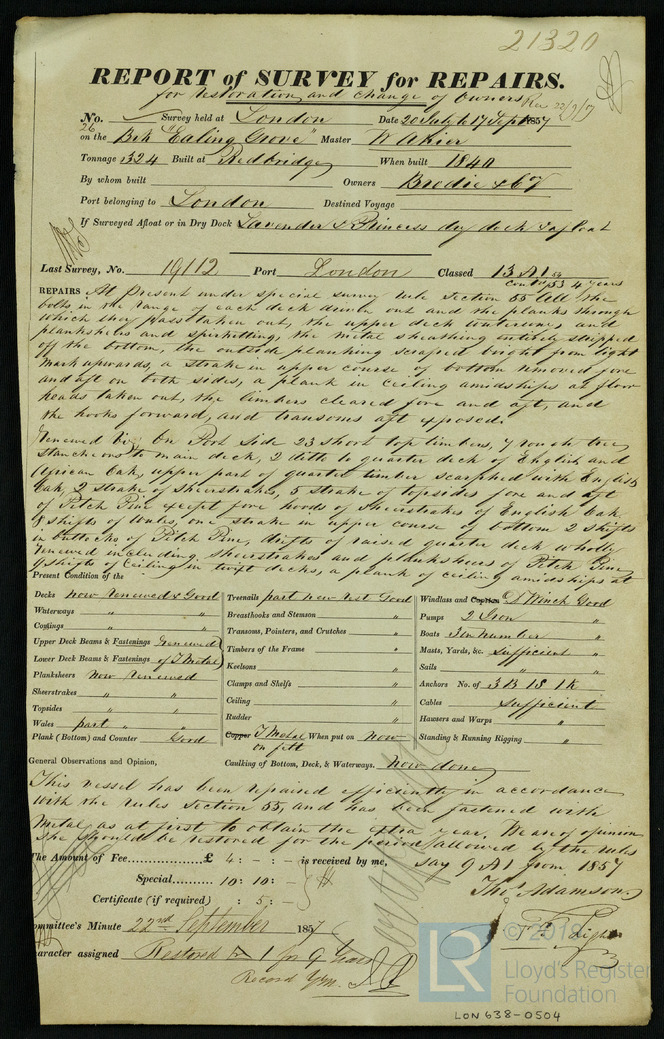 21320
REPORT of SURVEY for REPAIRS.
for restoration and change of Owners Rec 22/9/57
No. Survey held at London Date 20 July to 17 Sept 1857
26
on the Brk "Ealing Grove" Master W
Tonnage 324 Built at Redbridge When built 1840
By whom built Owners Brodie & Co
Port belonging to London Destined Voyage
If Surveyed Afloat or in Dry Dock Lavender & Princess dry dock & afloat
Last Survey, No. 19112 Port London Classed 13 A1 54
Contd 53 4 years
REPAIRS: At Present under special survey rule Section 55 all the
bolts in the range of each deck driven out and the planks through
which they pass taken out, the upper deck waterways and
plankshears and spirketting, the metal sheathing entirely stripped
off the bottom, the outside planking scraped bright from light
mark upwards, a strake in upper course of bottom removed fore
and aft on both sides, a plank in ceiling amidships at floor
heads taken out, the limbers cleared fore and aft, and
the hooks forward, and transoms aft exposed.
Renewed Viz. On Port Side 23 short top timbers, 7 rough tree
stancheons to main deck, 2 ditto to quarter deck of English and
African Oak, upper part of quarter timber scarphed with English
Oak, 2 strake of sheerstrakes, 5 strake of topsides fore and aft
of Pitch Pine except fore hoods of sheerstrakes of English Oak
8 shifts of Wales, one strake in upper course of bottom 2 shifts
in buttocks of Pitch Pine, drifts of raised quarter deck wholly
renewed including sheerstrakes and plankshears of Pitch Pine
9 shifts of ceiling in twixt decks, a plank of ceiling amidships at
Present Condition of the
Decks now Renewed & Good
Waterways " "
Comings " "
Upper Deck Beams & Fastenings renewed
Lower Deck Beams & Fastenings of Y Metal
Planksheers Now renewed
Sheerstrakes " "
Topsides " "
Wales part " "
Plank (Bottom) and Counter Good
Treenails part new rest Good
Breasthooks and Stemson "
Transoms, Pointers, and Crutches "
Timbers of the Frame "
Keelsons "
Clamps and Shelfs "
Ceiling "
Rudder "
Copper Y Metal When put on now
on felt
Caulking of Bottom, Deck, & Waterways. Now done
Windlass and Capstan & Winch Good
Pumps 2 Iron "
Boats 3 in number "
Masts, Yards, &c. Sufficient "
Sails "
Anchors No. of 3 B 1 S 1 K "
Cables Sufficient
Hawsers and Warps "
Standing & Running Rigging "
General Observations and Opinion,
This vessel has been repaired efficiently in accordance
with the rules Section 55, and has been fastened with
Metal as at first to obtain the extra year. We are of opinion
she should be restored for the period allowed by the rules
say 9 A1 from 1857
The Amount of Fee £ 4 : - : - is received by me,
Special 10 : 10 : -
Certificate (if required) : 5 : -
Thos. Adamson
T. F. Light
Committee's Minute 22nd September 1857
Character assigned Restored A 1 for 9 Years
Record Ym.
LR
© 2019
Lloyd's Register
Foundation
LON 638-0504